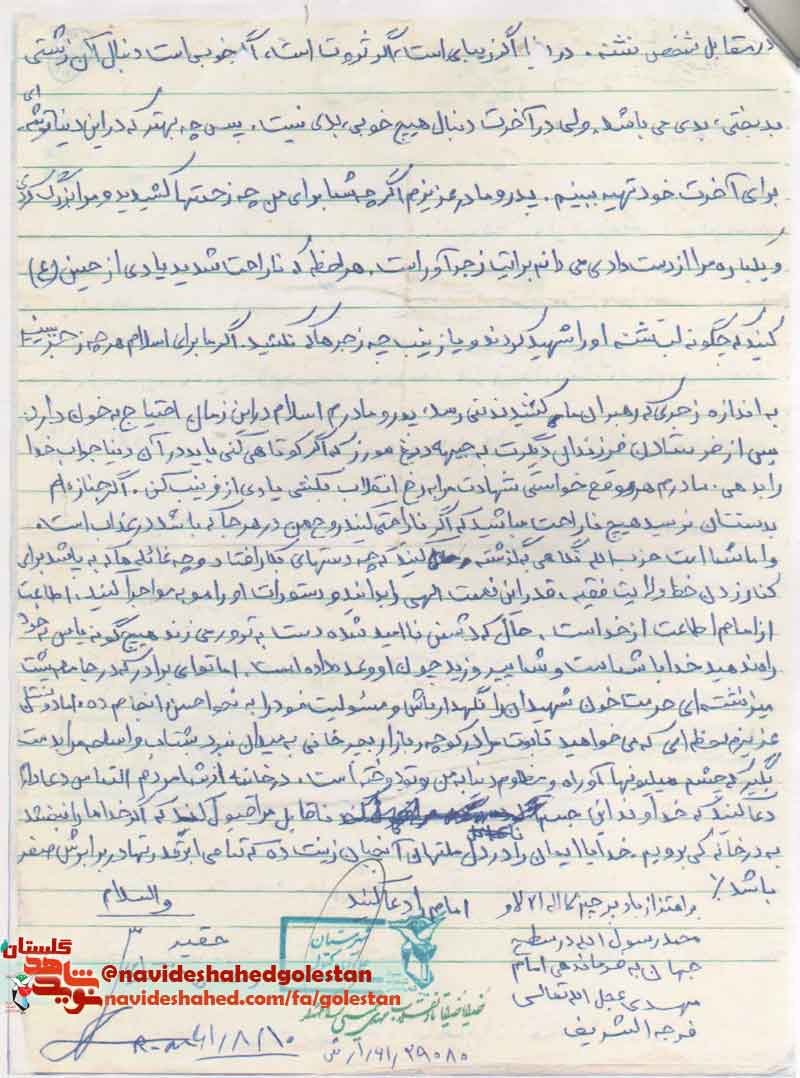 در مقابل شخص نشته. در اگر زیبایی است، اگر ثروت است، اگر خوبی است دنبال آن زشتی
بدبختی، بدی می باشد. ولی در آخرت دنبال هیچ خوبی، بدی نیست. پس چه بهتر که در این دنیا توشه ای
برای آخرت خود تهیه ببینیم. پدر و مادر عزیزم اگر چه شما برای من چه زحمتها کشیدید و مرا بزرگ کردی
و یکباره مرا از دست دادی می دانم برایت زجرآور است. هر لحظه که ناراحت شدید یادی از حسین (ع)
کنید که چگونه لب تشنه او را شهید کردند و یا زینب چه زجرها که نکشید. اگر ما برای اسلام هر چه زجر ببینیم
به اندازه زجری که رهبران ما کشیدند نمی رسد، پدر و مادرم اسلام در این زمان احتیاج به خون دارد
پس از فرستادن فرزندان دیگرت به جبهه دریغ مورز که اگر کوتاهی کنی باید در آن دنیا جواب خدا
را بدهی. مادرم هر موقع خواستی شهادت مرا به رخ انقلاب بکشی یادی از زینب کن. اگر جنازه ام
بدستتان نرسید هیچ ناراحت مباشید که اگر ناراحتی کنید روح من در هر جا که باشد در عذاب است.
و اما شما امت حزب الله نگاهی به گذشته کنید که چه دستهای بکار افتاد و چه غائله ها که به پا شد برای
کنار زدن خط ولایت فقیه. قدر این نعمت الهی را بدانید و دستورات او را مو به مو اجرا کنید. اطاعت
از امام اطاعت از خداست. حال که دشمن ناامید شده دست به ترور می زند هیچ گونه یاس به خود
راه ندهید خدا با شماست و شما پیروزید چون او وعده داده است. اما تو ای برادر که در جامعه پشت
میز نشسته ای حرمت خون شهیدان را نگهدار باش و مسئولیت خود را به نحو احسن انجام ده، اما دوستان
عزیزم لحظه ای که می خواهید تابوت مرا در کوچه و بازار بچرخانی به میدان نبرد بشتاب و اسلحه مرا بدست
بگیر که چشم میلیونها آواره و مظلوم دنیا به من و تو دوخته است. در خاتمه از شما مردم التماس دعا دارم
دعا کنید که خداوند این جسم ناقابل مرا قبول کند که اگر خدا ما را نبخشد
به در خانه کی برویم. خدایا ایمان را در دل ملتمان آنچنان زینت ده که تمامی ابرقدرتها در برابرش صفر
باشد٪
امام را دعا کنید
والسلام
به اهتزاز باد پرچم لااله الا الله و
محمد رسول الله در سطح
جهان به فرماندهی امام
مهدی عجل الله تعالی
فرجه الشریف
حقیر
۶۱/۸/۱۰
۶۱/۲۹۰۸۰/آرش
گلستان
نوید شاهد
@navideshahedgolestan
navideshahed.com/fa/golestan